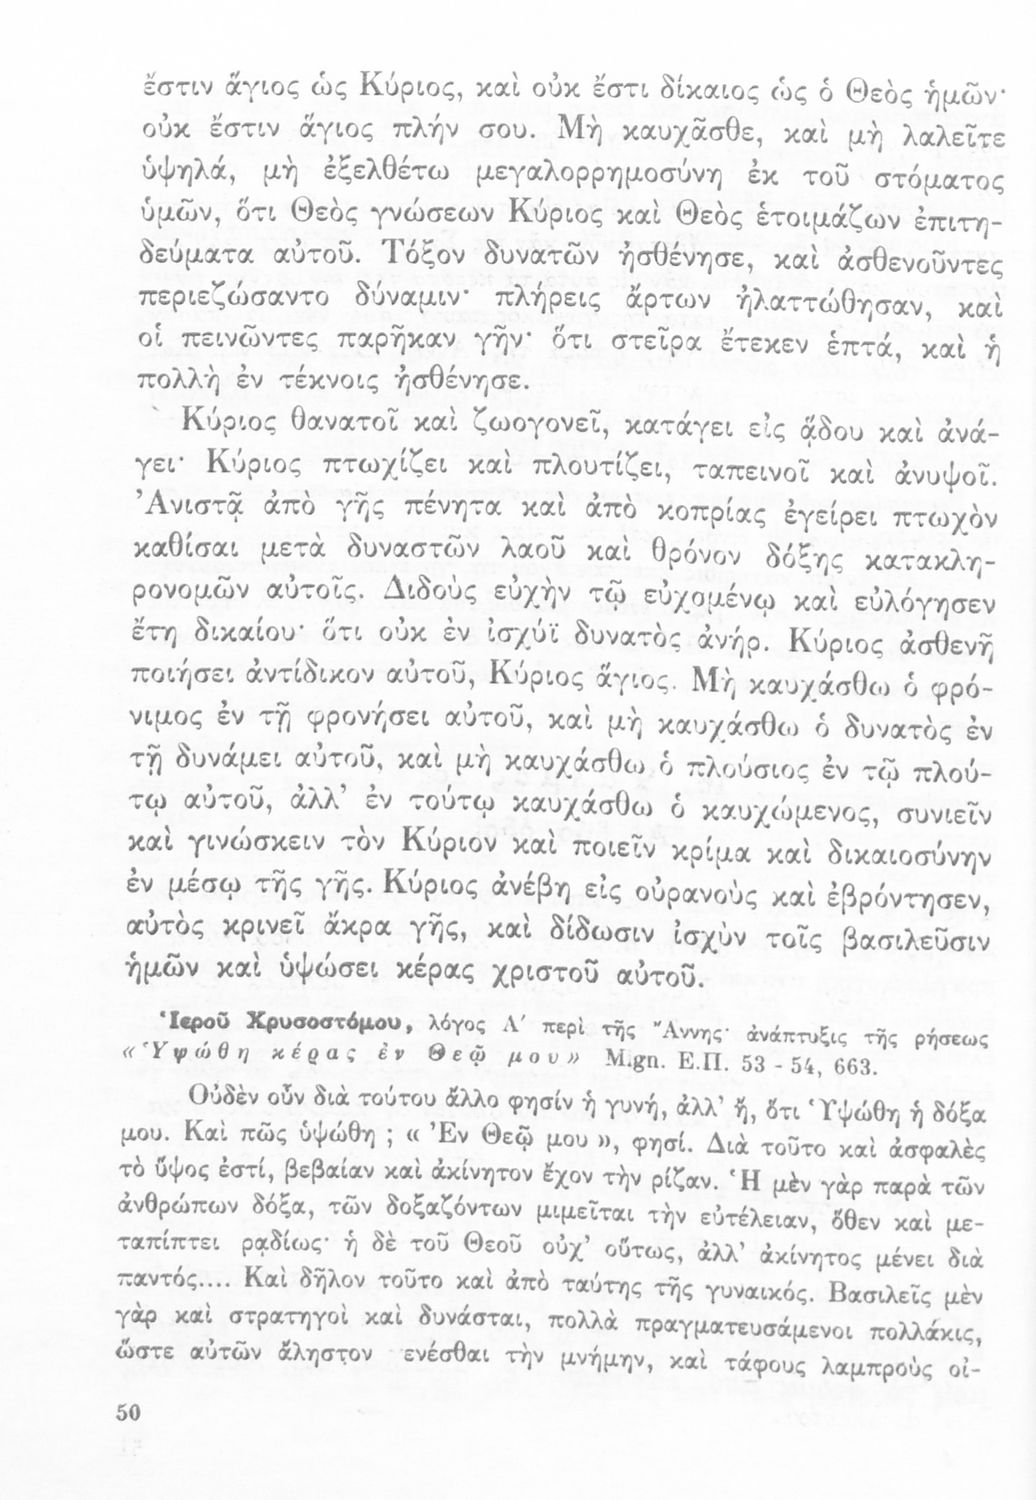 ἔστιν ἅγιος ὡς Κύριος, καὶ οὐκ ἔστι δίκαιος ὡς ὁ Θεὸς ἡμῶν·
οὐκ ἔστιν ἅγιος πλήν σου. Μὴ καυχᾶσθε, καὶ μὴ λαλεῖτε
ὑψηλά, μὴ ἐξελθέτω μεγαλορρημοσύνη ἐκ τοῦ στόματος
ὑμῶν, ὅτι Θεὸς γνώσεων Κύριος καὶ Θεὸς ἑτοιμάζων ἐπιτη-
δεύματα αὐτοῦ. Τόξον δυνατῶν ἠσθένησε, καὶ ἀσθενοῦντες
περιεζώσαντο δύναμιν· πλήρεις ἄρτων ἠλαττώθησαν, καὶ
οἱ πεινῶντες παρῆκαν γῆν· ὅτι στεῖρα ἔτεκεν ἑπτά, καὶ ἡ
πολλὴ ἐν τέκνοις ἠσθένησε.
Κύριος θανατοῖ καὶ ζωογονεῖ, κατάγει εἰς ᾅδου καὶ ἀνά-
γει· Κύριος πτωχίζει καὶ πλουτίζει, ταπεινοῖ καὶ ἀνυψοῖ.
Ἀνιστᾷ ἀπὸ γῆς πένητα καὶ ἀπὸ κοπρίας ἐγείρει πτωχὸν
καθίσαι μετὰ δυναστῶν λαοῦ καὶ θρόνον δόξης κατακλη-
ρονομῶν αὐτοῖς. Διδοὺς εὐχὴν τῷ εὐχομένῳ καὶ εὐλόγησεν
ἔτη δικαίου· ὅτι οὐκ ἐν ἰσχύϊ δυνατὸς ἀνήρ. Κύριος ἀσθενῆ
ποιήσει ἀντίδικον αὐτοῦ, Κύριος ἅγιος. Μὴ καυχάσθω ὁ φρό-
νιμος ἐν τῇ φρονήσει αὐτοῦ, καὶ μὴ καυχάσθω ὁ δυνατὸς ἐν
τῇ δυνάμει αὐτοῦ, καὶ μὴ καυχάσθω ὁ πλούσιος ἐν τῷ πλού-
τῳ αὐτοῦ, ἀλλ’ ἐν τούτῳ καυχάσθω ὁ καυχώμενος, συνιεῖν
καὶ γινώσκειν τὸν Κύριον καὶ ποιεῖν κρίμα καὶ δικαιοσύνην
ἐν μέσῳ τῆς γῆς. Κύριος ἀνέβη εἰς οὐρανοὺς καὶ ἐβρόντησεν,
αὐτὸς κρινεῖ ἄκρα γῆς, καὶ δίδωσιν ἰσχὺν τοῖς βασιλεῦσιν
ἡμῶν καὶ ὑψώσει κέρας χριστοῦ αὐτοῦ.
Ἱεροῦ Χρυσοστόμου, λόγος Λ′ περὶ τῆς Ἄννης· ἀνάπτυξις τῆς ρήσεως
«Ὑψώθη κέρας ἐν Θεῷ μου» Mign. Ε.Π. 53 - 54, 663.
Οὐδὲν οὖν διὰ τούτου ἄλλο φησίν ἡ γυνή, ἀλλ’ ἤ, ὅτι Ὑψώθη ἡ δόξα
μου. Καὶ πῶς ὑψώθη ; « Ἐν Θεῷ μου », φησί. Διὰ τοῦτο καὶ ἀσφαλὲς
τὸ ὕψος ἐστί, βεβαίαν καὶ ἀκίνητον ἔχον τὴν ρίζαν. Ἡ μὲν γὰρ παρὰ τῶν
ἀνθρώπων δόξα, τῶν δοξαζόντων μιμεῖται τὴν εὐτέλειαν, ὅθεν καὶ με-
ταπίπτει ραδίως· ἡ δὲ τοῦ Θεοῦ οὐχ’ οὕτως, ἀλλ’ ἀκίνητος μένει διὰ
παντός.... Καὶ δῆλον τοῦτο καὶ ἀπὸ ταύτης τῆς γυναικός. Βασιλεῖς μὲν
γὰρ καὶ στρατηγοὶ καὶ δυνάσται, πολλὰ πραγματευσάμενοι πολλάκις,
ὥστε αὐτῶν ἄληστον ενέσθαι τὴν μνήμην, καὶ τάφους λαμπροὺς οἰ-
50